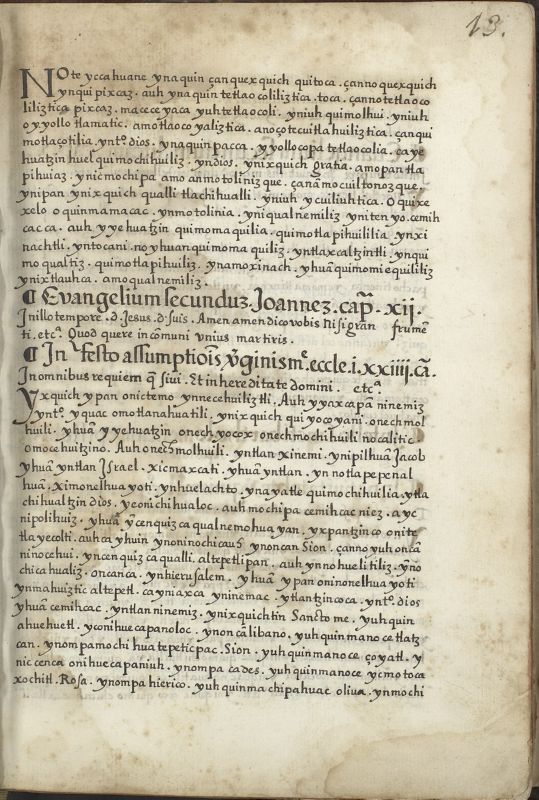 13.
NOte yccahuane ynaquin çanquexquich quitoca. çannoquexquich
ynquipixcaz. auh ynaquin tetlaocoliliztica .toca. çannotetlaoco
liliztica pixcaz. macece yaca yuhtetlaocoli. yniuh quimolhui. yniuh
oyyollo tlamatic. amotlaocoyaliztica. anoçotecuitlahuiliztica. çanqui
motlaçotilia .yntº. dios. ynaquin pacca. yyollocopa tetlaocolia. ça ye
huatzin huel quimochihuiliz. yn dios. ynixquich gratia. amopantla
pihuiaz. ynic mochipa amo anmotolinizque. çanãmocuiltonozque.
ynipan ynixquich qualli tlachihualli. yniuh ycuiliuhtica. Oquixe
xelo oquinmamacac. ynmotolinia. yniqualnemiliz ynitenyo. cemih
cacca. auh yyehuatzin quimomaquilia. quimotlapihuililia .ynxi
nachtli. yntocani. noyhuan quimomaquiliz. yntlaxcaltzintli. ynqui
moqualtiz. quimotlapihuiliz. ynamoxinach. yhuã quimomiequililiz
ynixtlauhca. amoqualnemiliz.
¶ Evangelium secunduz. Joannez. cap̃. xij.
Inillo tempore .d. Jesus .d. suis. Amen amen dico vobis Nisi gran frumẽ
ti. etcª. Quod quere in comuni vnius martiris.
¶ In festo assumptiois v̄ginis mᵉ. eccle. i. xxiiij. cã.
In omnibus requiem q̃ siui. Et in hereditate domini. etcª
Yxquichypan onictemo ynnecehuiliztli. Auh yyaxcapã ninemiz
yntº. yquac omotlanahuatili. ynixquich quiyocoyani. onechmol
huili. yhuã yyehuatzin onechyocox onechmochihuili nocalitic
omocehuitzino. Auh onechmolhuili. yntlan xinemi. ynipilhuã Jacob
yhuã yntlan Israel. xicmaxcati. yhuã yntlan. yn notlapepenal
huã. ximonelhuayoti. ynhuelachto. ynayatle quimochihuilia. ytla
chihualtzin dios. yeonichihualoc. auh mochipa cemihcac niez. ayc
nipolihuiz. yhuã ycenquizca qualnemohuayan. yxpantzinco onite
tlayecolti. auh ca yhuin ynoninochicauh ynoncan Sion. çannoyuh oncã
ninocehui. yncenquizca qualli. altepetl ipan. auh ynnohuelitiliz. yno
chicahualiz. oncan ca. ynhierusalem. yhuã ypan oninonelhuayoti
ynmahuiztic altepetl. cayniaxca yninemac. ytlantzinco ca. yntº. dios
yhuã cemihcac. yntlan ninemiz. ynixquichtin Sancto me. yuhquin
ahuehuetl. yconihuecapanoloc. ynoncã libano. yuhquinmano cetlatz
can. ynompa mochihua tepeticpac. Sion. yuhquinmanoce çoyatl. y
niccenca onihuecapaniuh. ynompa cades. yuhquinmanoce ycmotoca
xochitl. Rosa. ynompa hierico. yuhquinma chipahuac oliua. ynmochi